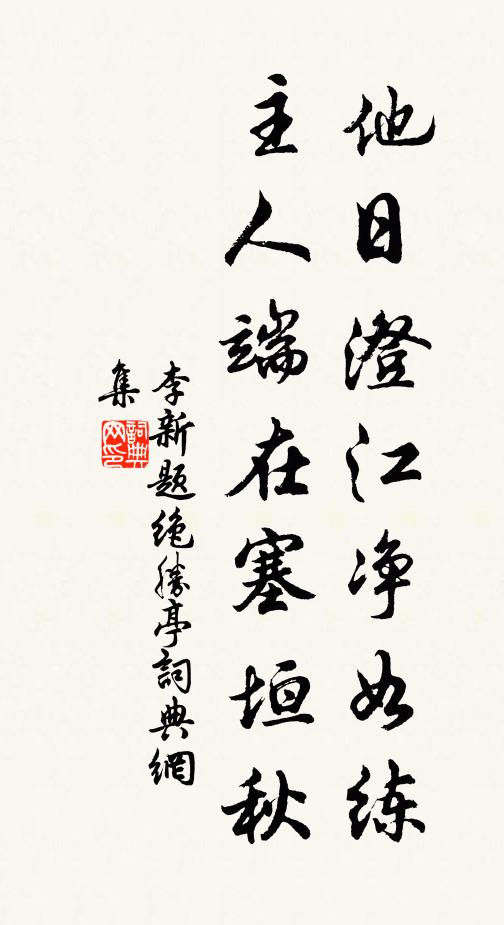 他日澄江净如练
主人端在塞垣秋
李新题绝勝亭詞典網
集
詞典网印